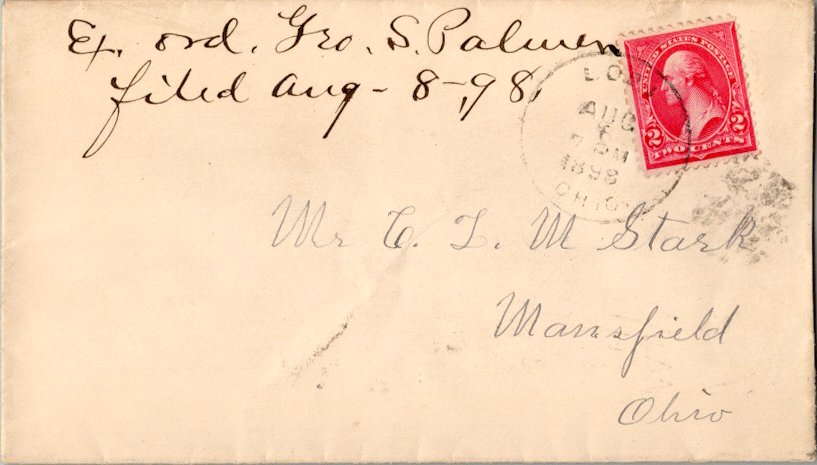 Ex. ord. Geo. S. Palmer
filed Aug - 8 -, 98.
UNITED STATES POSTAGE
2 2
TWO CENTS
AUG
1898
OHIO
Mr C. L. M Stark
Mansfield
Ohio